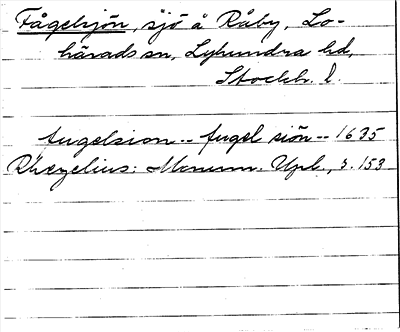 Fågelsjön, sjö å Råby, Lo-
härads sn, Lyhundra hd,
Stockh. l.
fugelsion -- fugel siön -- 1635
Rhezelius: Monum. Upl., s. 153